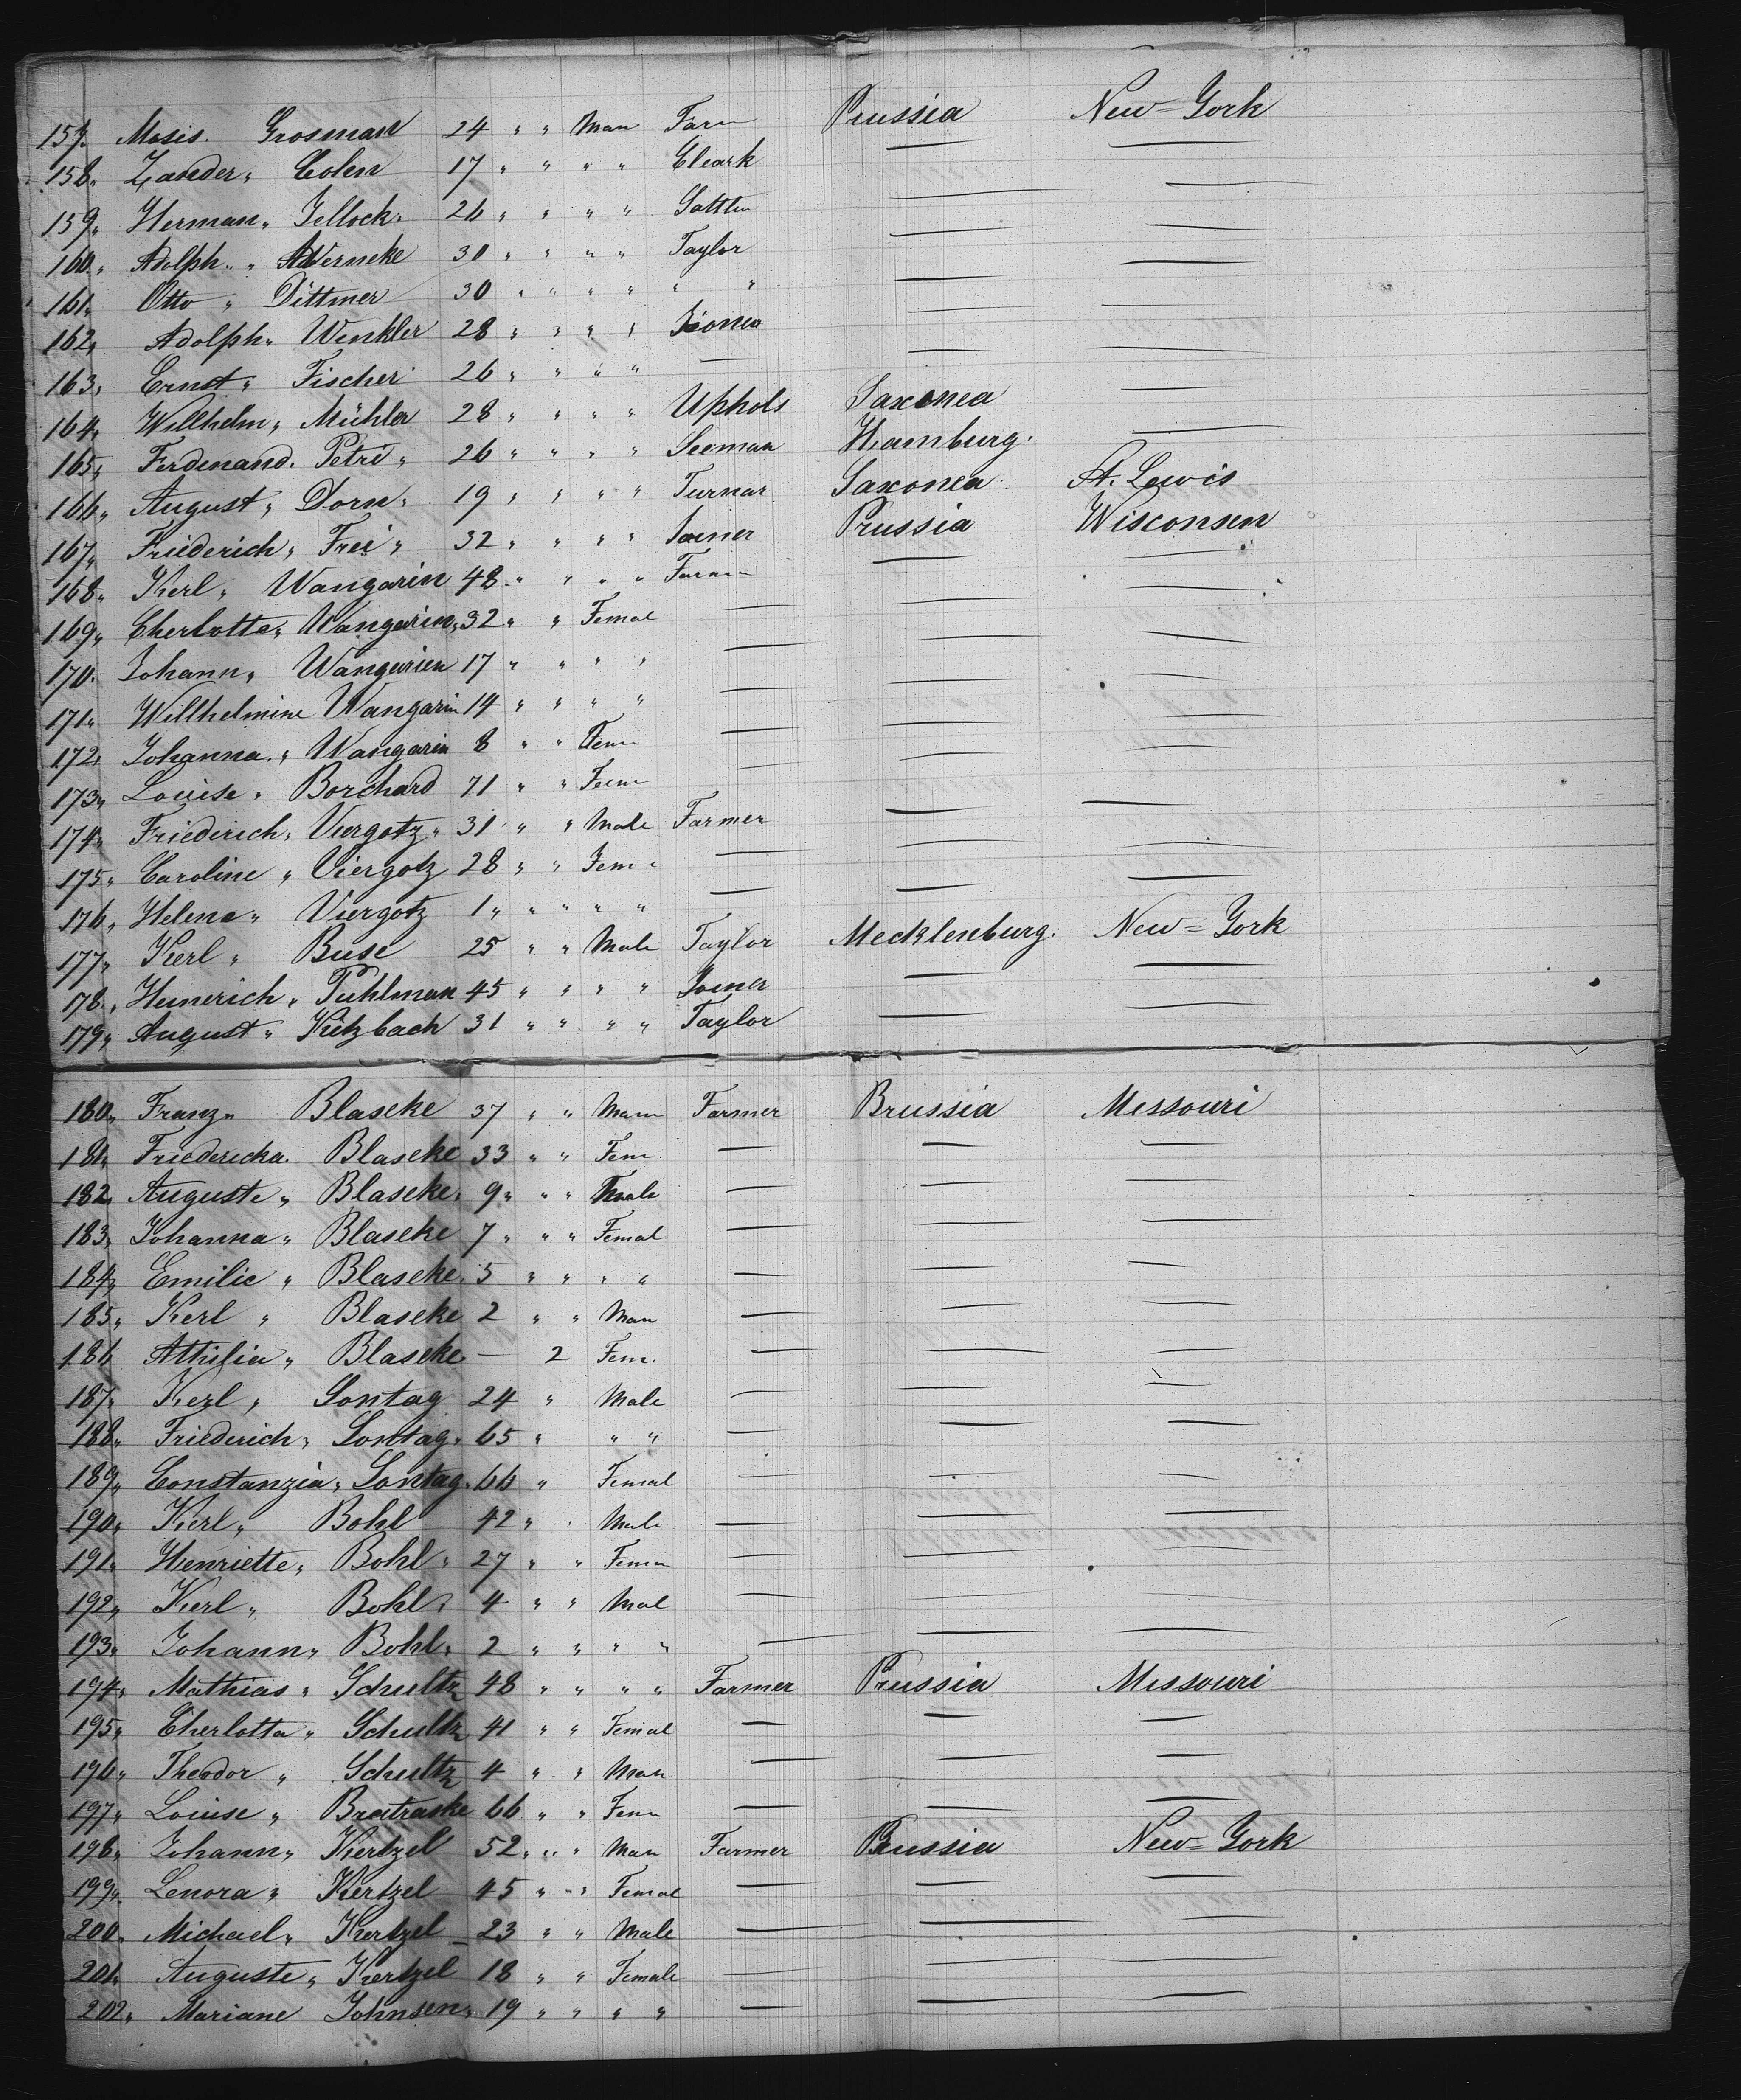 157. Mosis. Grosman 24 " " Man Farm Prussia New-York
158. Zander. Colen 17 " " " " Cleark — —
159. Herman. Jellock. 26 " " " " Sattler — —
160. Adolph. " AWerneke 30 " " " " Taylor — —
161. Otto " Dittmer 30 " " " " " " — —
162. Adolph. Winkler 28 " " " " — —
163. Ernst " Fischer 26 " " " " — — —
164. Willhelm " Mühler 28 " " " " Uphols Saxonea —
165. Ferdinand. Petri " 26 " " " " Seeman Hamburg. —
166. August " Dorn. 19 " " " " Turnar Saxonea St. Lewis
167. Friederich " Frei " 32 " " " " Joiner Prussia Wisconsen
168. Kerl " Wangarin 48 " " " " Farm — —
169. Cherlotte " Wangarin. 32 " " Femal — — —
170. Johann " Wangarien 17 " " " " — — —
171. Willhelmine Wangarin 14 " " " " — — —
172. Johanna. " Wangarin 8 " " Fem — — —
173. Louise " Borchard 71 " " Fem — — —
174. Friederich " Viergotz " 31 " " Male Farmer — —
175. Caroline " Viergotz 28 " " Fem " — — —
176. Helene " Viergotz 1 " " " " " — — —
177. Kerl " Buse 25 " " Male Taylor Mecklenburg. New-York
178. Heinerich " Puhlman 45 " " " " Joiner — —
179. August " Kitzbach 31 " " " " Taylor — —
180. Franz " Blaseke 37 " " Mann Farmer Brussia Messouri
181. Friedericka. Blaseke 33 " " Fem. — — —
182. Auguste " Blaseke. 9 " " " Male — — —
183. Johanna " Blaseke 7 " " " Femal — — —
184. Emilie " Blaseke. 5 " " " " — — —
185. Kerl " Blaseke 2 " " Man — — —
186 Athilia " Blaseke — 2 Fem. — — —
187. Kerl " Sontag 24 " Male — — —
188. Friederich " Sontag. 65 " " " — — —
189. Constanzia " Sontag. 66 " Femal — — —
190. Kerl " Bohl 42 " " Male — — —
191. Henriette " Bohl " 27 " " Fem — — —
192. Kerl " Bohl. 4 " " Mal — — —
193. Johann " Bohl. 2 " " " " — — —
194. Mathias " Schultz 48 " " " " Farmer Prussia Missouri
195. Cherlotta " Schultz 41 " " Femal — — —
196. Theodor " Schultz 4 " " Man — — —
197. Louise " Bratraske 66 " " Fem — — —
198. Johann " Kertzel 52 " " " Man Farmer Prussia New-York
199. Lenora " Kertzel 45 " " Femal — — —
200. Michael " Kertzel 23 " " Male — — —
201. Auguste " Kertzel 18 " " Female — — —
202. Mariane Johnsen " 19 " " " " — — —